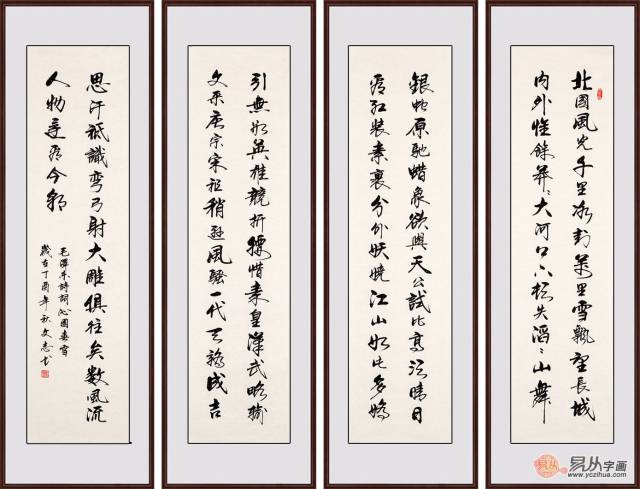 北國風光千里冰封萬里雪飄望長城
内外惟餘莽々大河上下頓失滔々山舞
銀蛇原馳蜡象欲與天公試比高須晴日
看紅裝素裹分外妖嬈江山如此多嬌
引無數英雄競折腰惜秦皇漢武略輸
文采唐宗宋祖稍遜風騷一代天驕成吉
思汗祗識彎弓射大雕俱往矣數風流
人物還看今朝
毛澤東詩詞沁園春雪
歲在丁酉年秋文志书
易从字画
www.yczihua.com